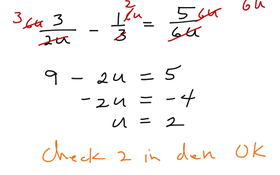 3 6u 3/2u - 2 6u 1/3 = 5/6u 6u 6u
9 - 2u = 5
-2u = -4
u = 2
Check 2 in den OK